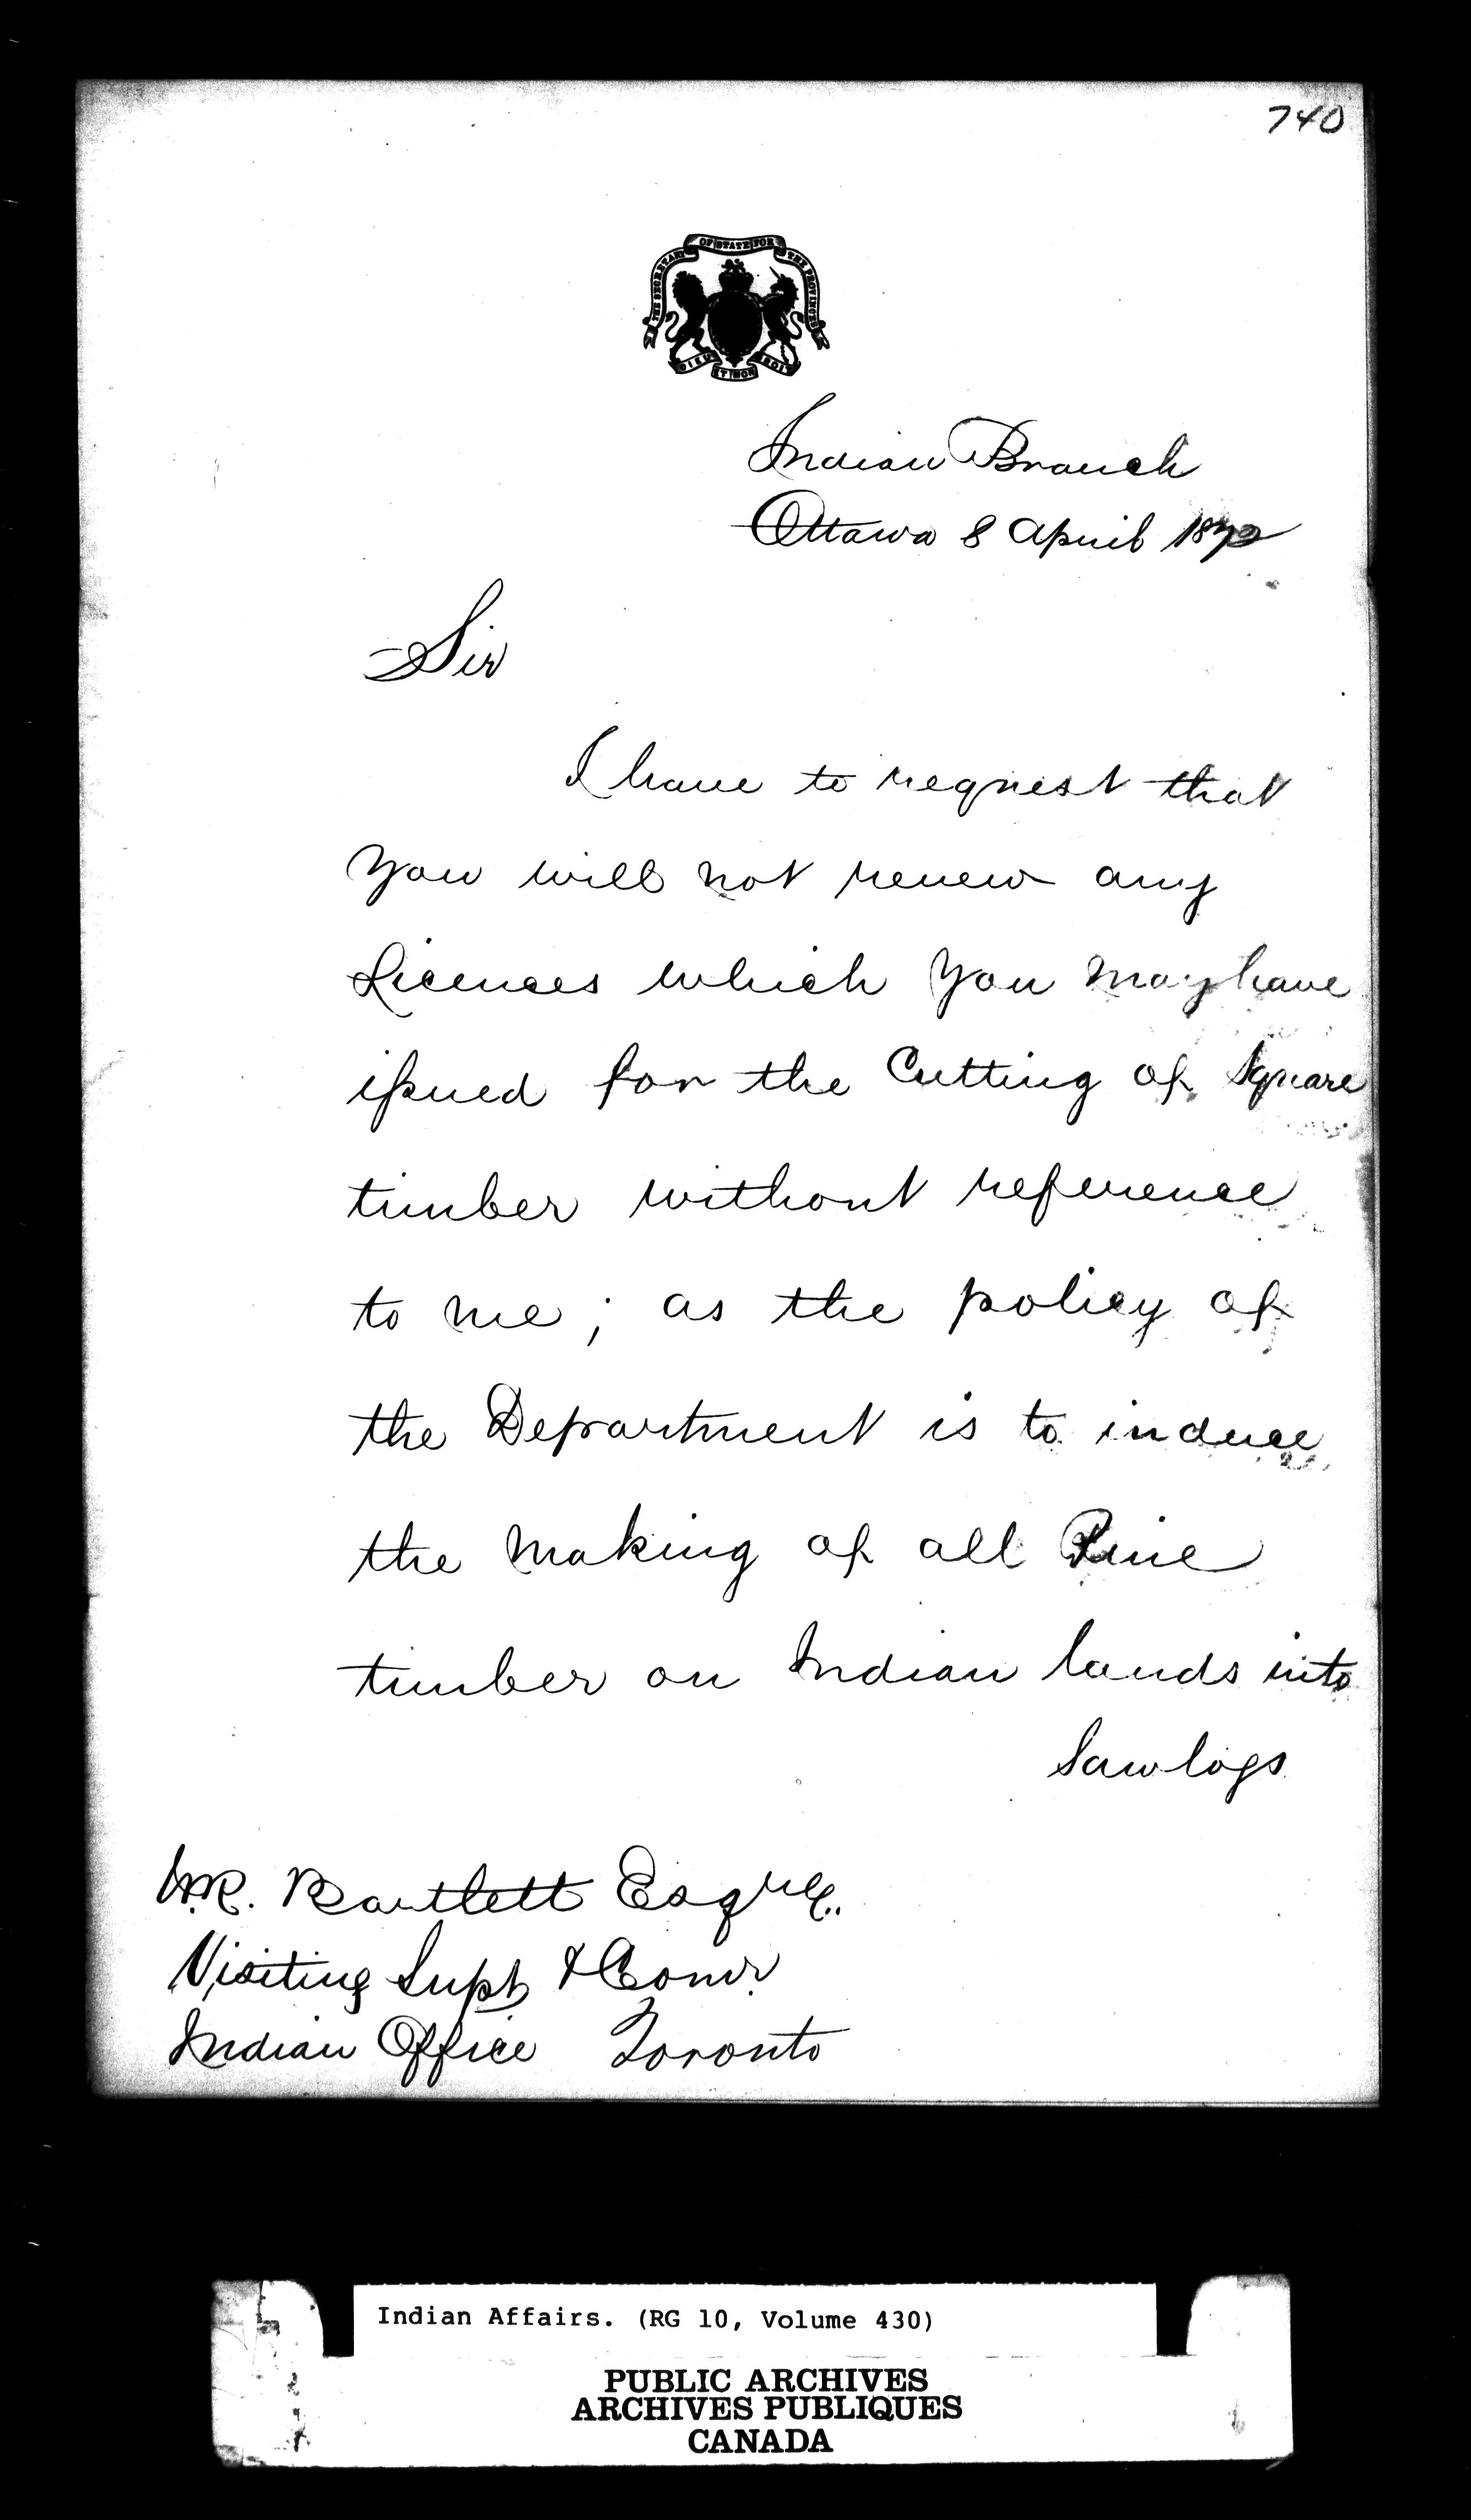 740
THE SECRETARY OF STATE FOR THE PROVINCES
DIEU ET MON DROIT
Indian Branch
Ottawa 8 April 1872
Sir
I have to request that
you will not renew any
Licences which you may have
issued for the Cutting of Square
timber without reference
to me; as the policy of
the Department is to induce
the making of all Pine
timber on Indian lands into
Sawlogs
W.R. Bartlett Esqre.
Visiting Supt & Comr.
Indian Office Toronto
Indian Affairs. (RG 10, Volume 430)
PUBLIC ARCHIVES
ARCHIVES PUBLIQUES
CANADA